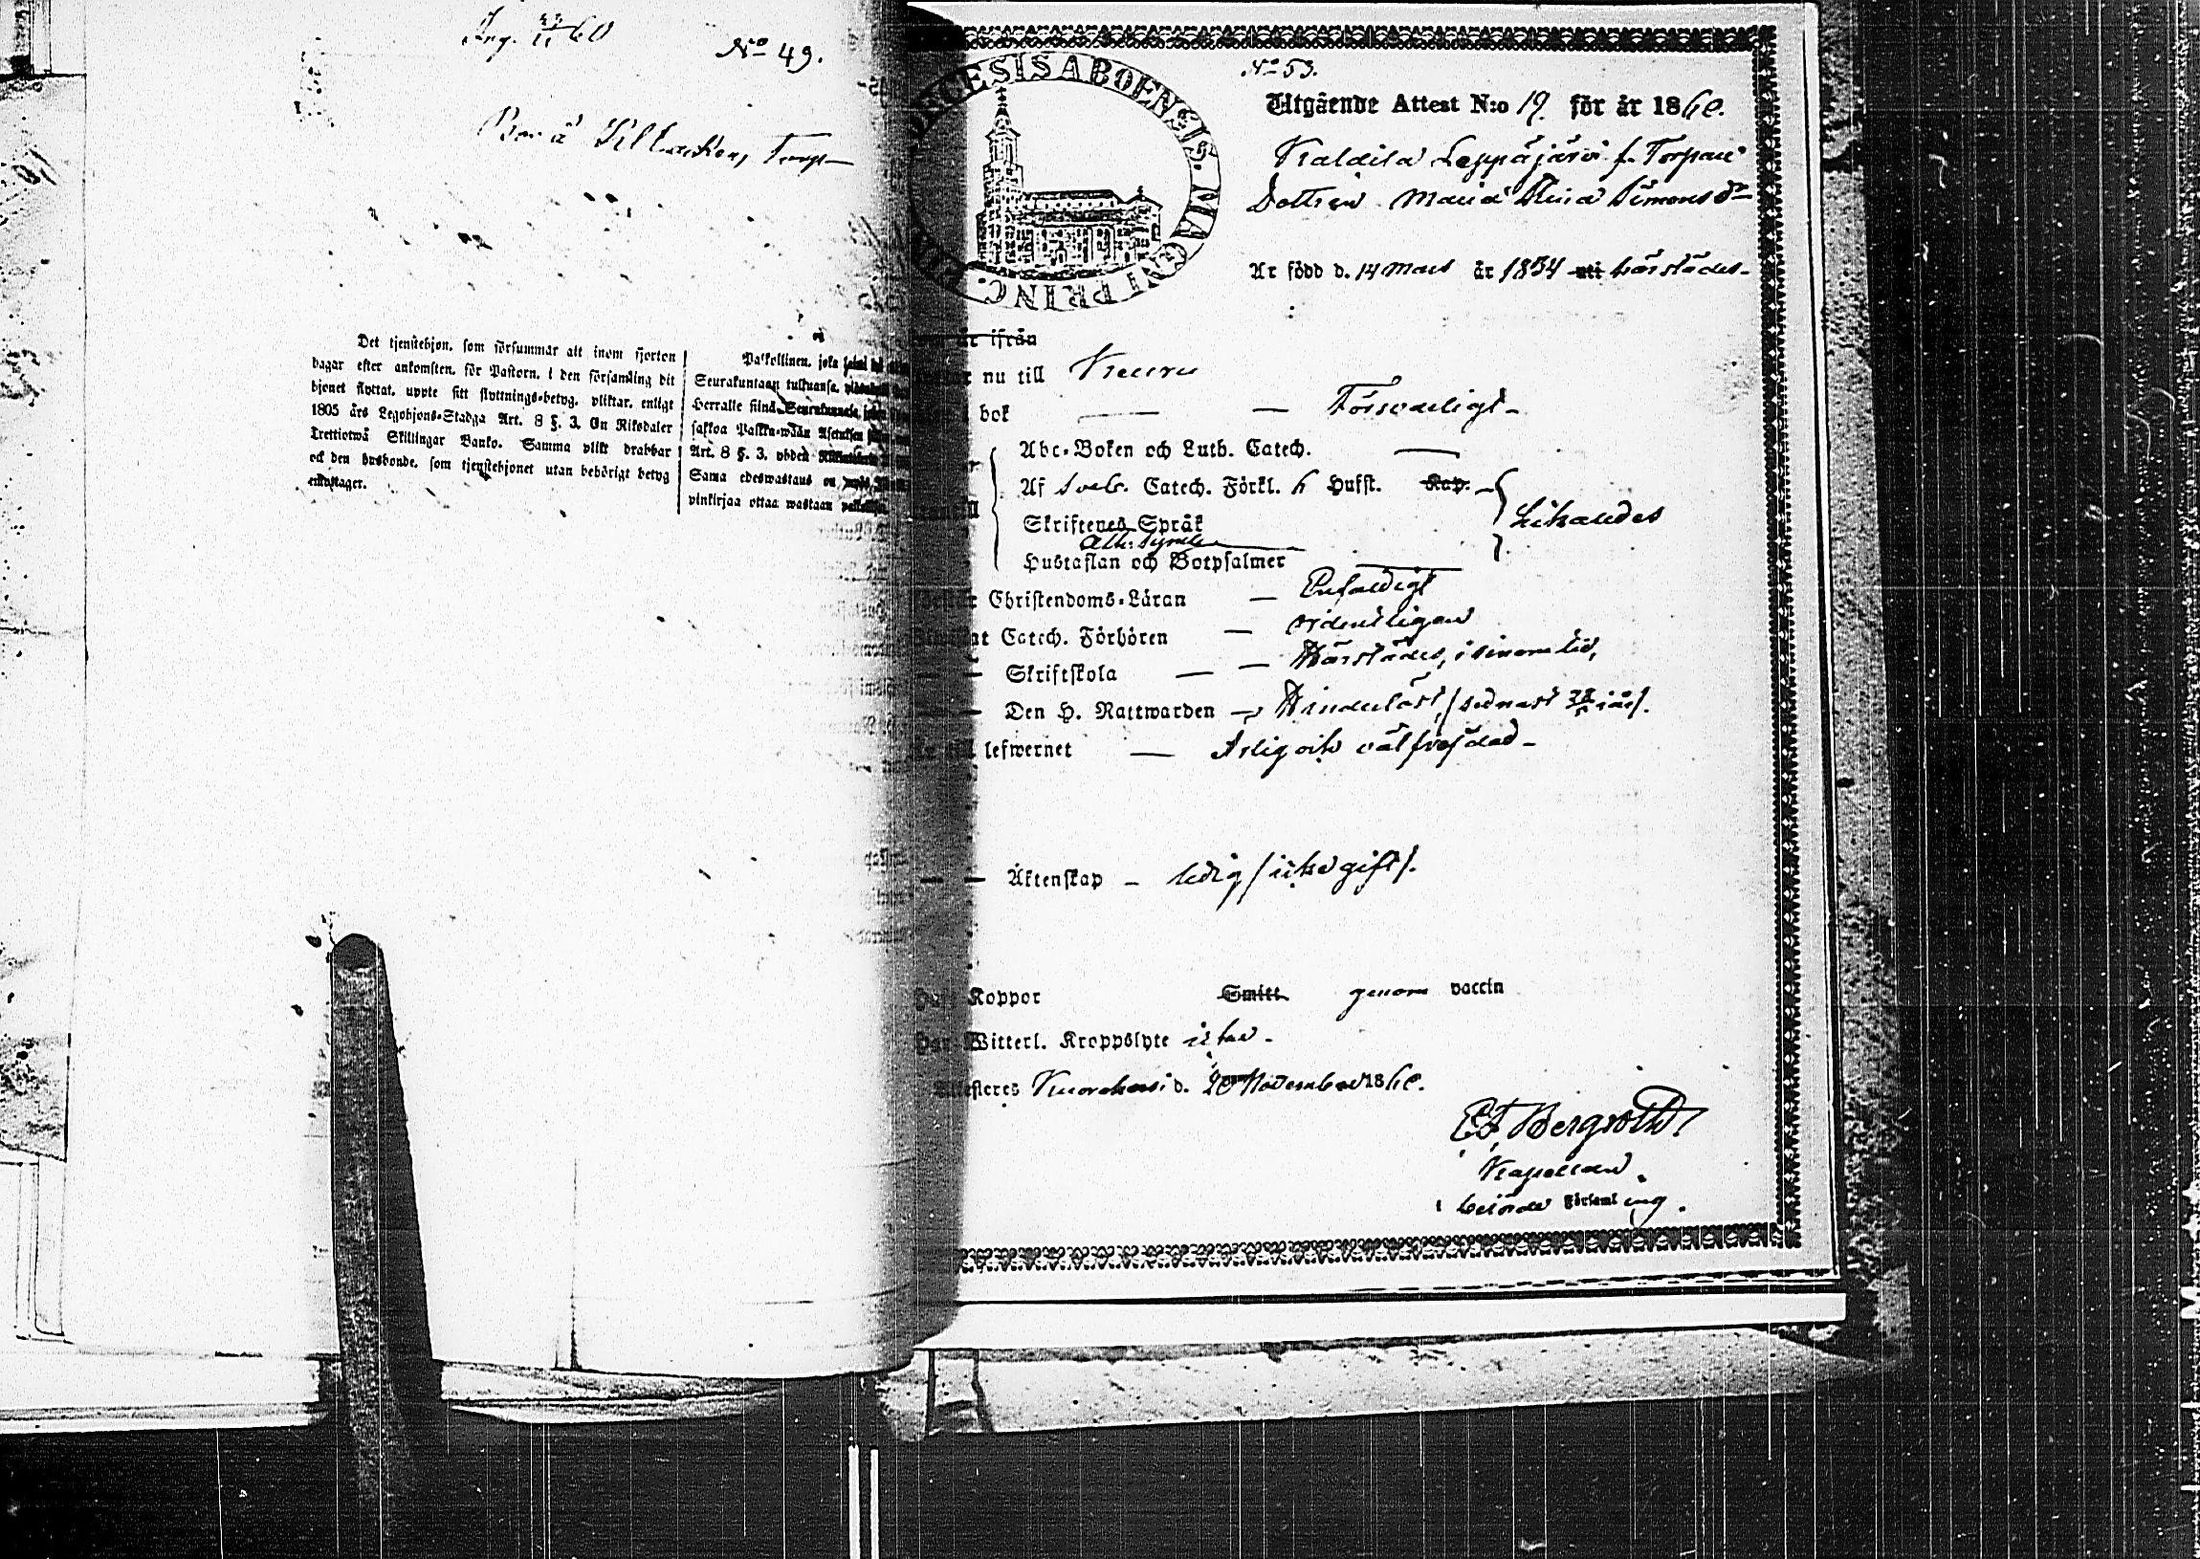 Ing. 23/11 60
No 49.
Bor å Torp
Det tjenstehjon, som försummar att inom fjorton
dagar efter ankomsten, för Pastorn, i den församling dit
hjonet flyttat, uppte sitt flyttnings-betyg, pliktar, enligt
1805 års Legohjons-Stadga Art. 8 §. 3. En Riksdaler
Trettiotwå Skillingar Banko. Samma plikt drabbar
ock den husbonde, som tjenstehjonet utan behörigt betyg
emottager.
Palkollinen, joka
Seurakuntaan tultuansa,
Herralle siinä Seurakunnasa,
sakkoa Palkka-wään Asetuksen
Art. 8 §. 3. yhden
Sama edeswastaus on myös
pinkirjaa ottaa wastaan
DIOECESIS ABOENSIS. MAGNI PRINC.
No 53.
Utgående Attest N:o 19 för år 1860.
Leppäjärvi f. Torpare
Dottren Maria Stina Simonsdr
Är född d. 14 Mars år 1834 uti härstädes
är ifrån
nu till Keuru
bok — — Försvarligt
Abc-Boken och Luth. Catech. —
Af Sveb. Catech. Förkl. 6 Hufst. Kap.
Likaledes
Skriftenes Språk
Ath. Symb.
Hustaflan och Botpsalmer
Christendoms-Läran — Enfaldigt
Catech. Förhören — ordentligen
— Skriftskola — — Härstädes, i sinom tid,
— Den H. Nattwarden — Hinderlöst, (sednast i år).
till lefwernet — Ärlig och välfrejdad
— — Äktenskap — ledig (icke gift).
Haft Koppor Smitt genom vaccin
Har Witterl. Kroppslyte icke
Attesteres Kuorehvesi d. 20 November 1860.
C F Bergroth
Kapellan
i berörde Församling.